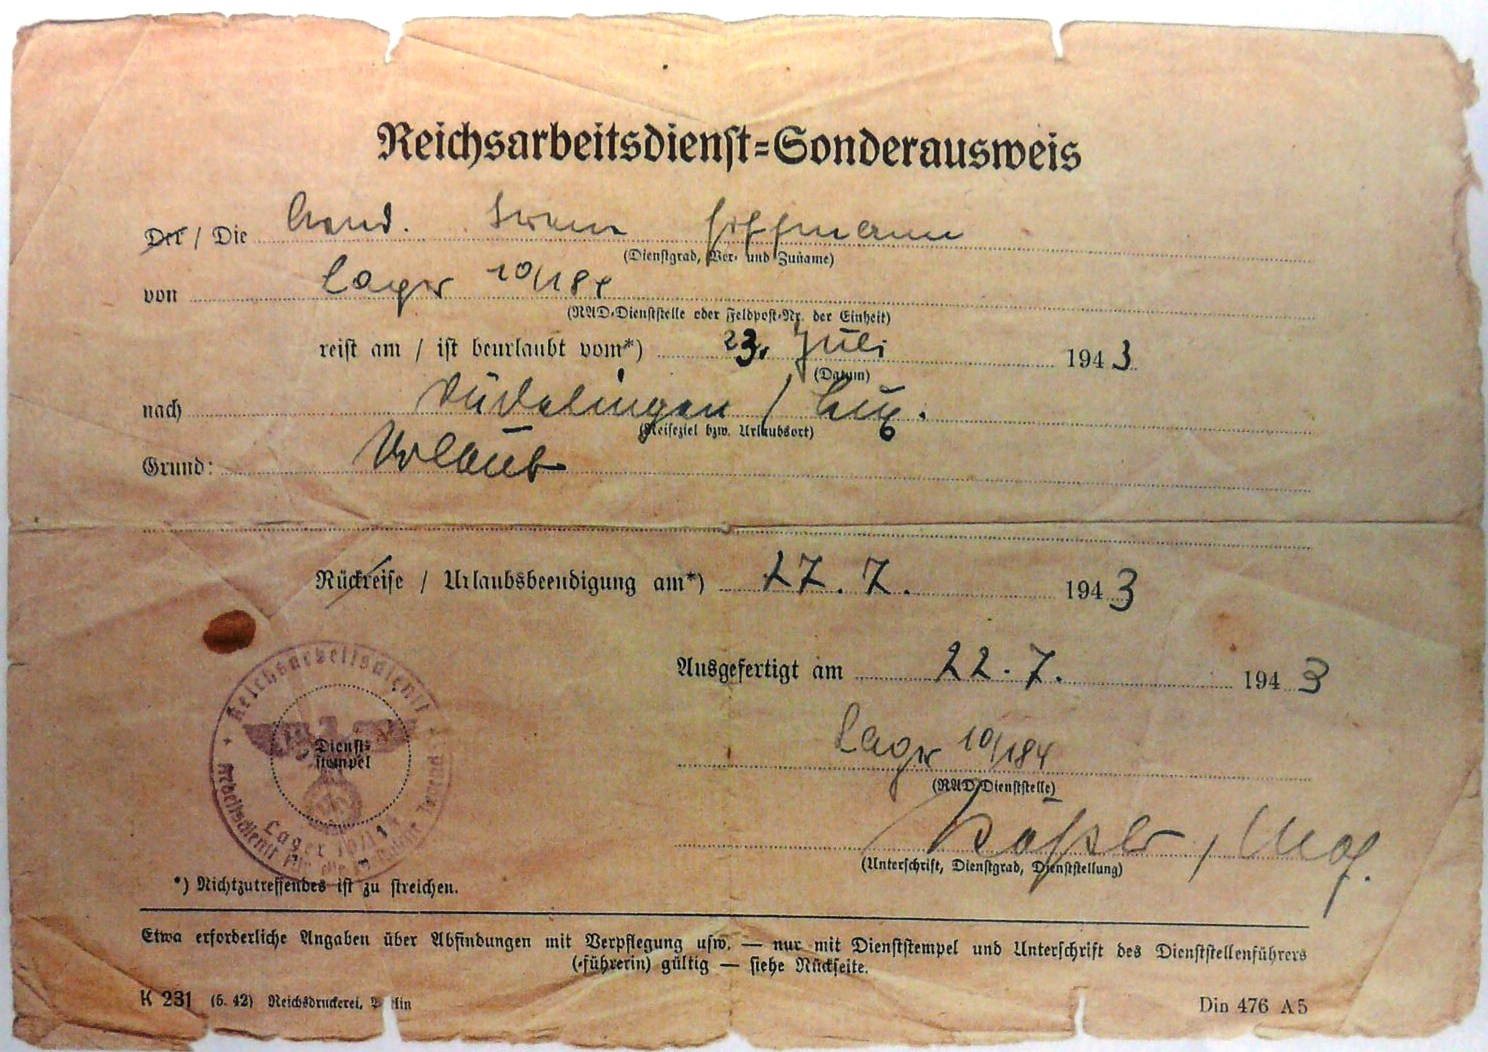 Reichsarbeitsdienst=Sonderausweis
Der / Die Irene Hoffmann
(Dienstgrad, Vor- und Zuname)
von Lager 10/184
(RAD-Dienststelle oder Feldpost-Nr. der Einheit)
reist am / ist beurlaubt vom*) 23. Juli 1943
(Datum)
nach Düdelingen / Lux.
(Reiseziel bzw. Urlaubsort)
Grund: Urlaub
Rückreise / Urlaubsbeendigung am*) 27. 7. 1943
Ausgefertigt am 22. 7. 1943
Reichsarbeitsdienst
Dienst=
stempel
Lager 10/18
Arbeitsdienst für die weibliche Jugend
Lager 10/184
(RAD-Dienststelle)
(Unterschrift, Dienstgrad, Dienststellung)
*) Nichtzutreffendes ist zu streichen.
Etwa erforderliche Angaben über Abfindungen mit Verpflegung usw. — nur mit Dienststempel und Unterschrift des Dienststellenführers
(-führerin) gültig — siehe Rückseite.
K 231 (5. 42) Reichsdruckerei, Berlin
Din 476 A5